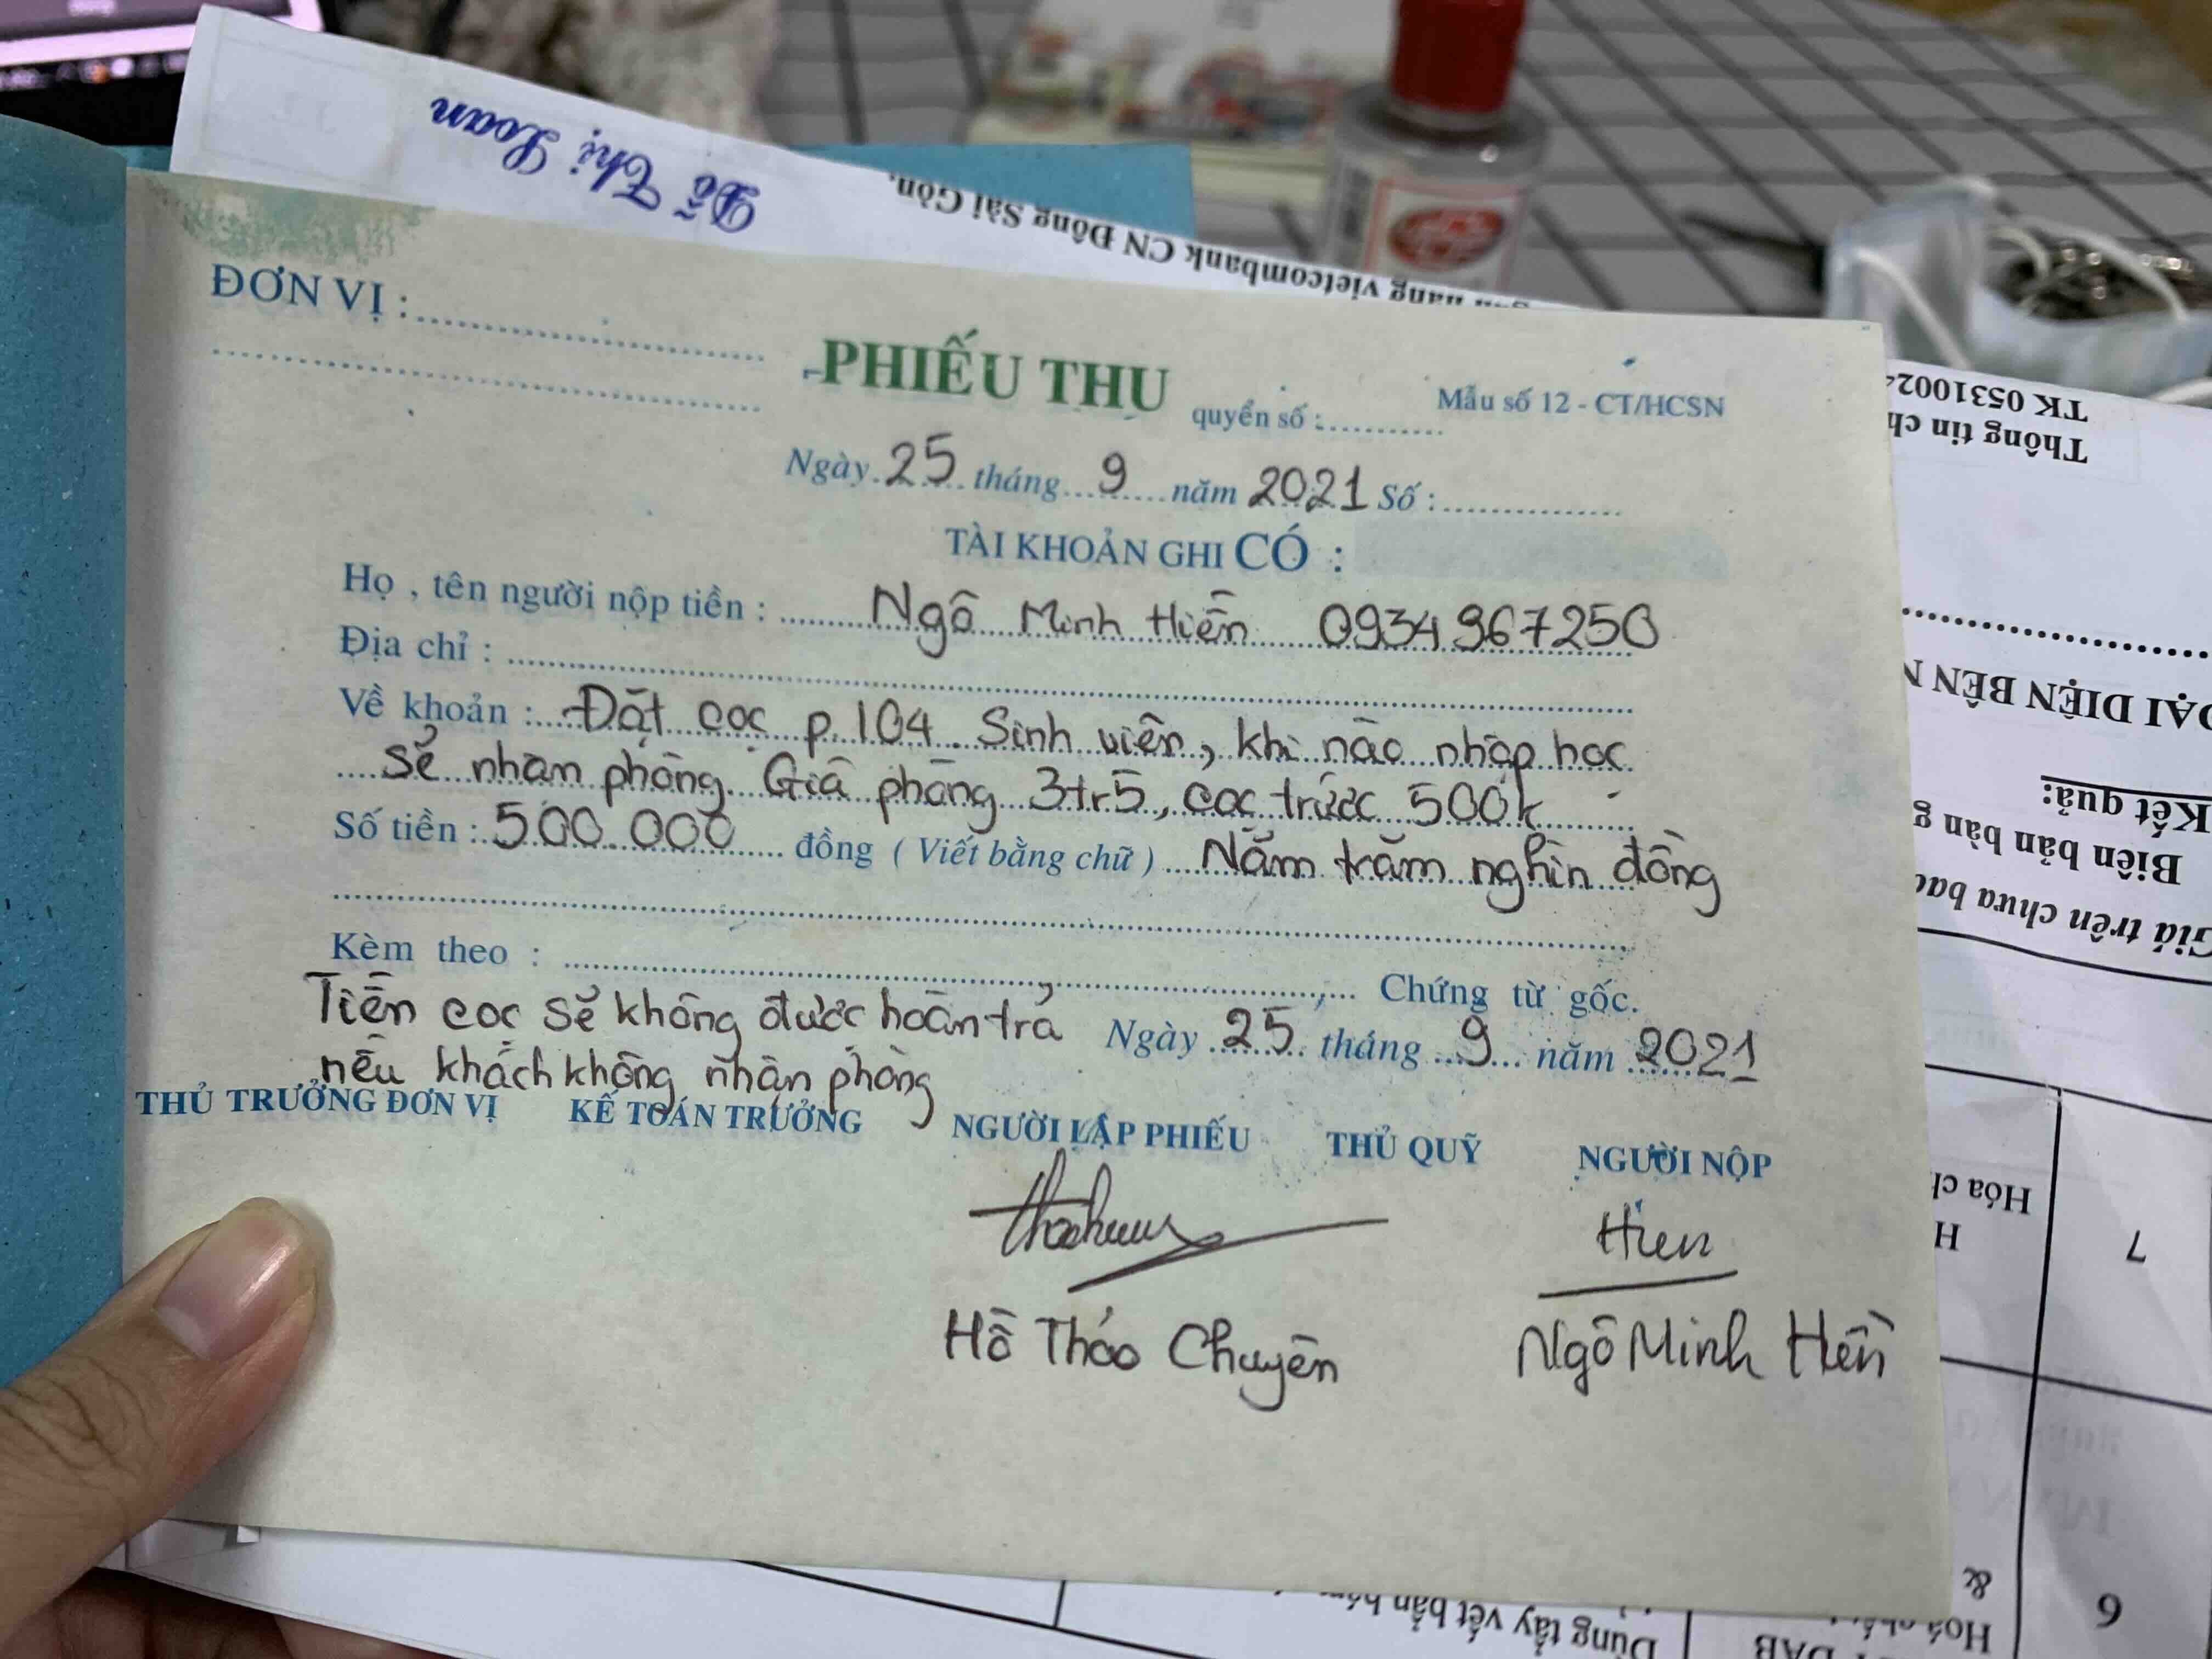 Đỗ Thị Loan
hàng vietcombank CN Đông Sài Gòn.
ĐƠN VỊ :
PHIẾU THU
quyển số :
Mẫu số 12 - CT/HCSN
Ngày 25 tháng 9 năm 2021 Số :
TÀI KHOẢN GHI CÓ :
Họ , tên người nộp tiền : Ngô Minh Hiền 0934967250
Địa chỉ :
Về khoản : Đặt cọc p.104. Sinh viên, khi nào nhập học
sẽ nhận phòng. Giá phòng 3tr5, cọc trước 500k
Số tiền : 500.000 đồng ( Viết bằng chữ ) Năm trăm nghìn đồng
Kèm theo : Chứng từ gốc.
Tiền cọc sẽ không được hoàn trả
nếu khách không nhận phòng
Ngày 25 tháng 9 năm 2021
THỦ TRƯỞNG ĐƠN VỊ KẾ TOÁN TRƯỞNG NGƯỜI LẬP PHIẾU THỦ QUỸ NGƯỜI NỘP
Hien
Hồ Thảo Chuyên Ngô Minh Hiền
TK 0531002
Thông tin ch
ĐẠI DIỆN BÊN N
Kết quả:
Biên bản bàn g
Giá trên chưa bao
7
Hóa ch
H
6
&
Hoá
DAB
Dùng tẩy vết bẩn